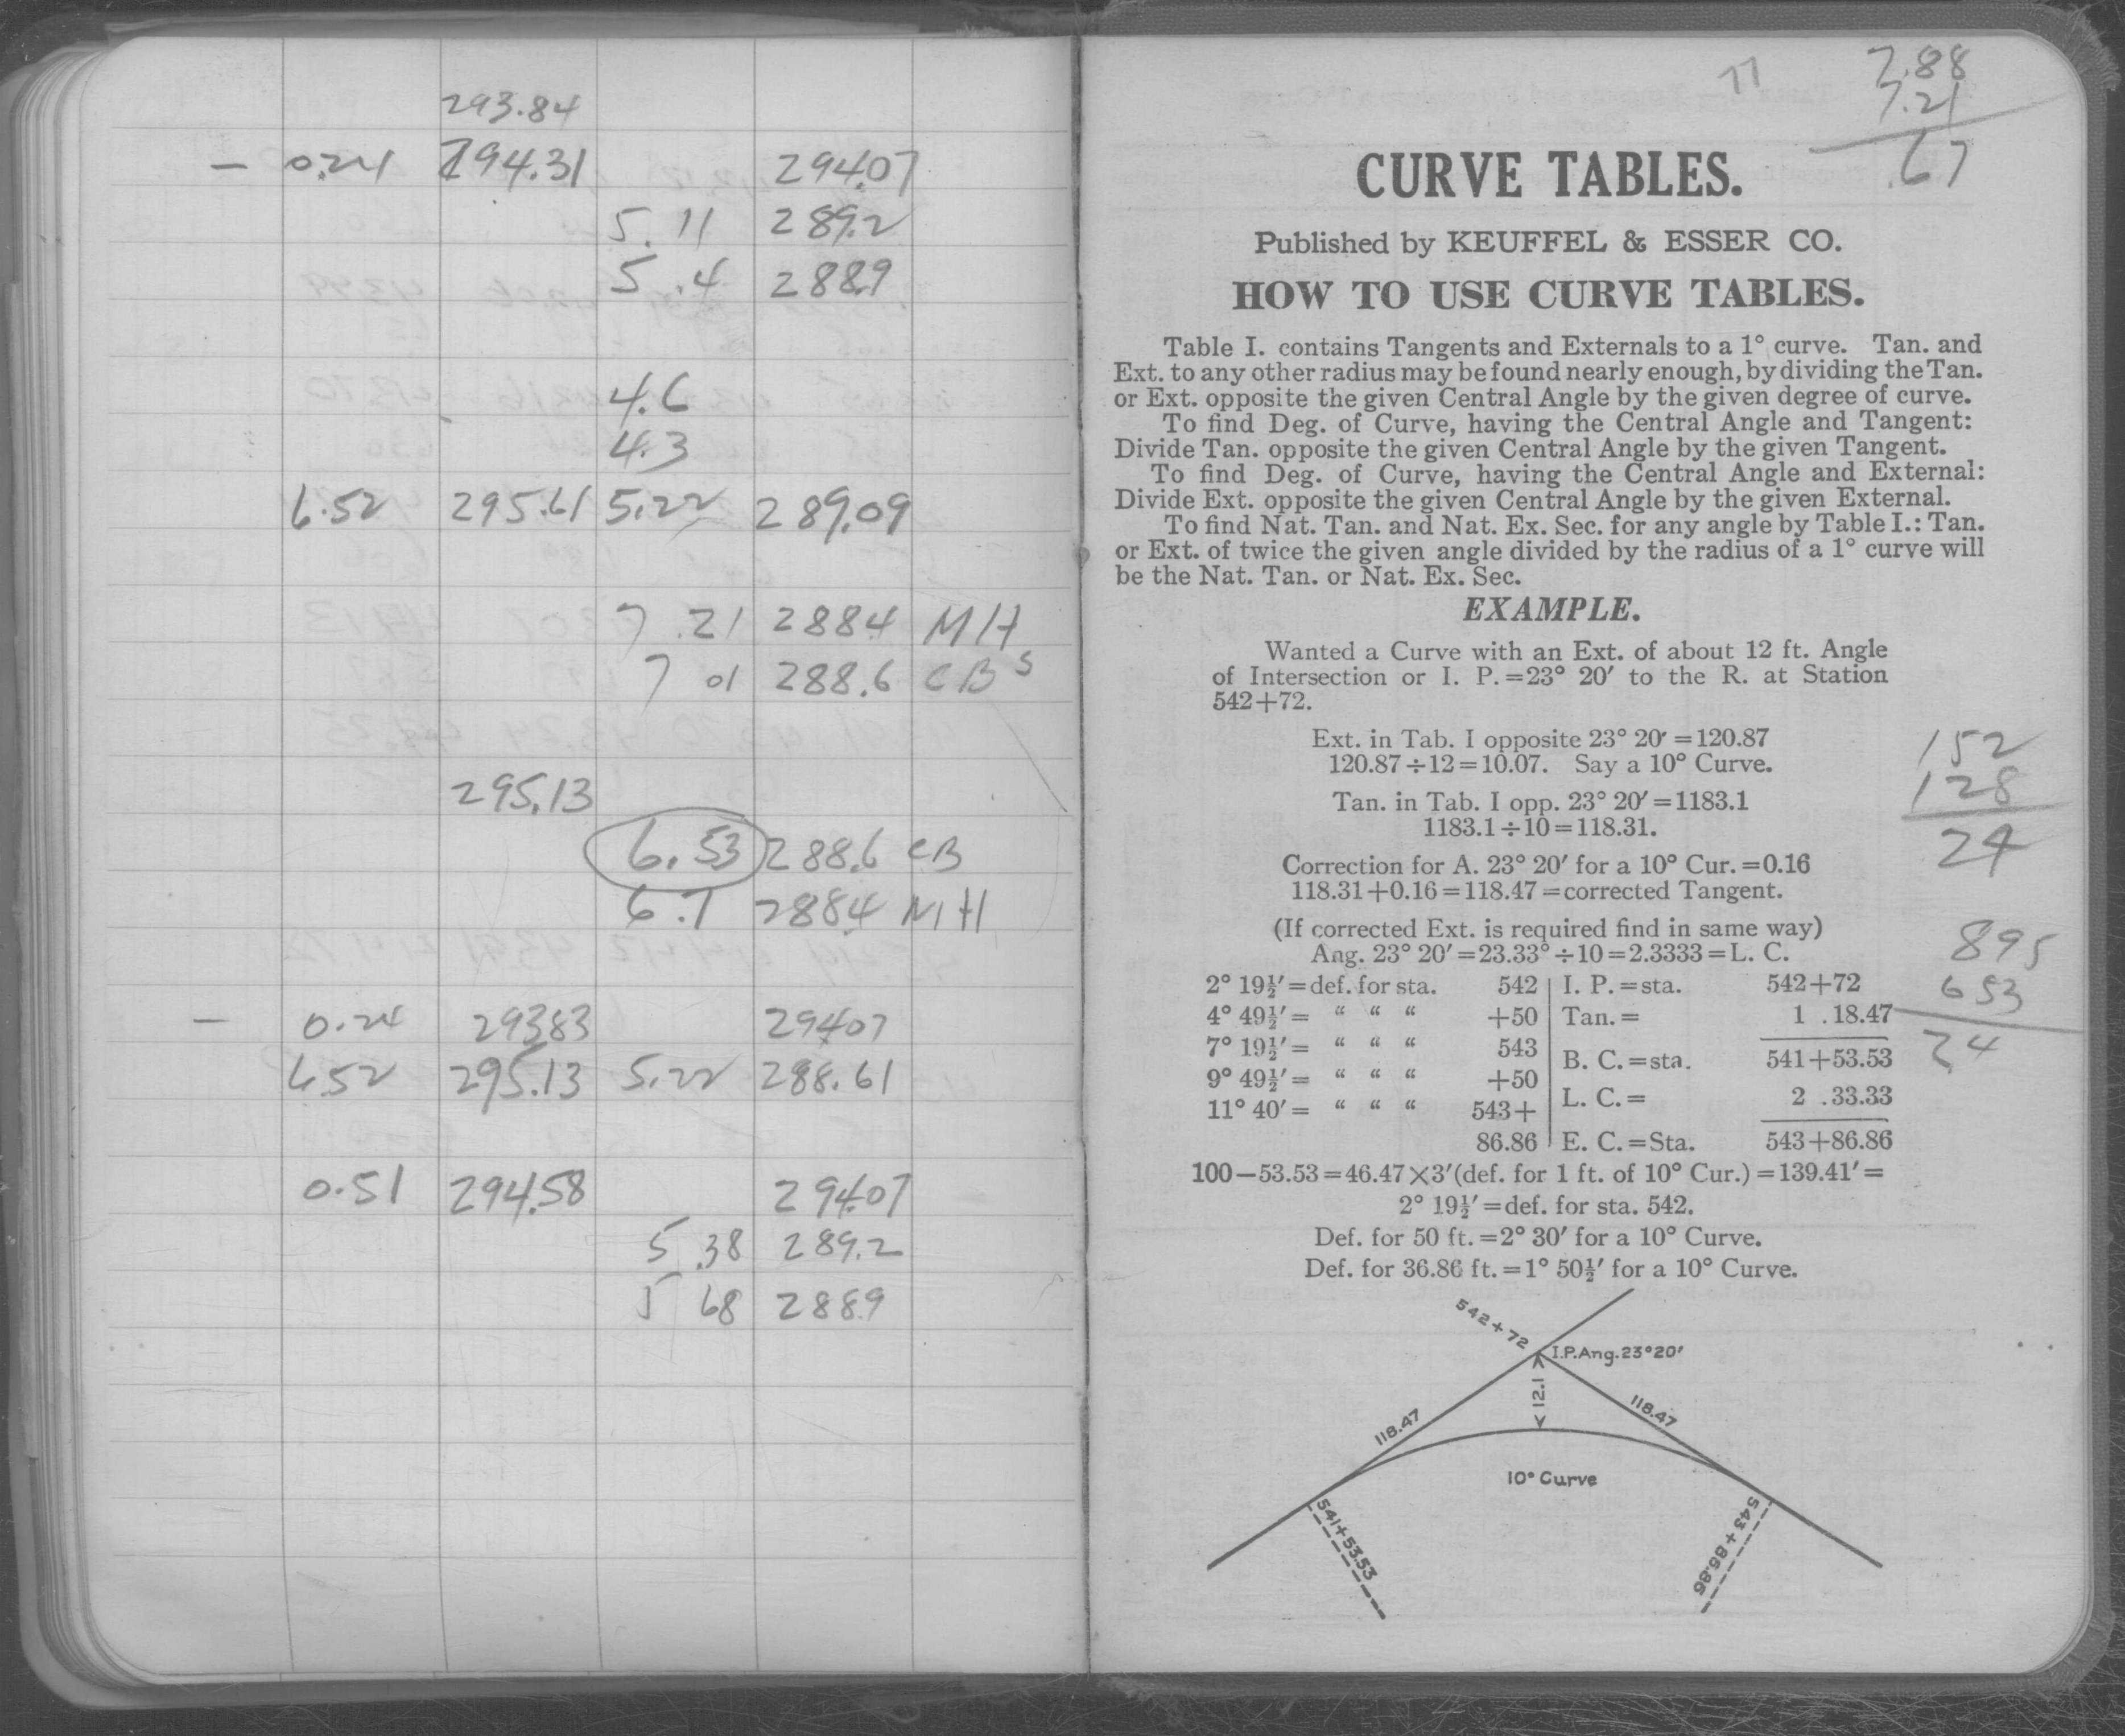 293.84
— 0.24 294.31 294.07
5.11 289.2
5.4 288.9
4.6
4.3
6.52 295.61 5.22 289.09
7.21 288.4 MH
7 01 288.6 CBs
295.13
6.53 288.6 CB
6.7 288.4 MH
— 0.24 293.83 294.07
6.52 295.13 5.22 288.61
0.51 294.58 294.07
5.38 289.2
5 68 288.9
77
7.88
7.21
.67
CURVE TABLES.
Published by KEUFFEL & ESSER CO.
HOW TO USE CURVE TABLES.
Table I. contains Tangents and Externals to a 1° curve. Tan. and
Ext. to any other radius may be found nearly enough, by dividing the Tan.
or Ext. opposite the given Central Angle by the given degree of curve.
To find Deg. of Curve, having the Central Angle and Tangent:
Divide Tan. opposite the given Central Angle by the given Tangent.
To find Deg. of Curve, having the Central Angle and External:
Divide Ext. opposite the given Central Angle by the given External.
To find Nat. Tan. and Nat. Ex. Sec. for any angle by Table I.: Tan.
or Ext. of twice the given angle divided by the radius of a 1° curve will
be the Nat. Tan. or Nat. Ex. Sec.
EXAMPLE.
Wanted a Curve with an Ext. of about 12 ft. Angle
of Intersection or I. P.=23° 20′ to the R. at Station
542+72.
Ext. in Tab. I opposite 23° 20′=120.87
120.87÷12=10.07. Say a 10° Curve.
Tan. in Tab. I opp. 23° 20′=1183.1
1183.1÷10=118.31.
Correction for A. 23° 20′ for a 10° Cur.=0.16
118.31+0.16=118.47=corrected Tangent.
(If corrected Ext. is required find in same way)
Ang. 23° 20′=23.33°÷10=2.3333=L. C.
2° 19½′=def. for sta. 542 I. P.=sta. 542+72
4° 49½′= “ “ “ +50 Tan.= 1 .18.47
7° 19½′= “ “ “ 543 B. C.=sta. 541+53.53
9° 49½′= “ “ “ +50 L. C.= 2 .33.33
11° 40′= “ “ “ 543+
86.86 E. C.=Sta. 543+86.86
100−53.53=46.47×3′(def. for 1 ft. of 10° Cur.)=139.41′=
2° 19½′=def. for sta. 542.
Def. for 50 ft.=2° 30′ for a 10° Curve.
Def. for 36.86 ft.=1° 50½′ for a 10° Curve.
152
128
24
895
653
24
542+72
I.P.Ang.23°20′
12.1
118.47
118.47
10° Curve
541+53.53
543+86.86